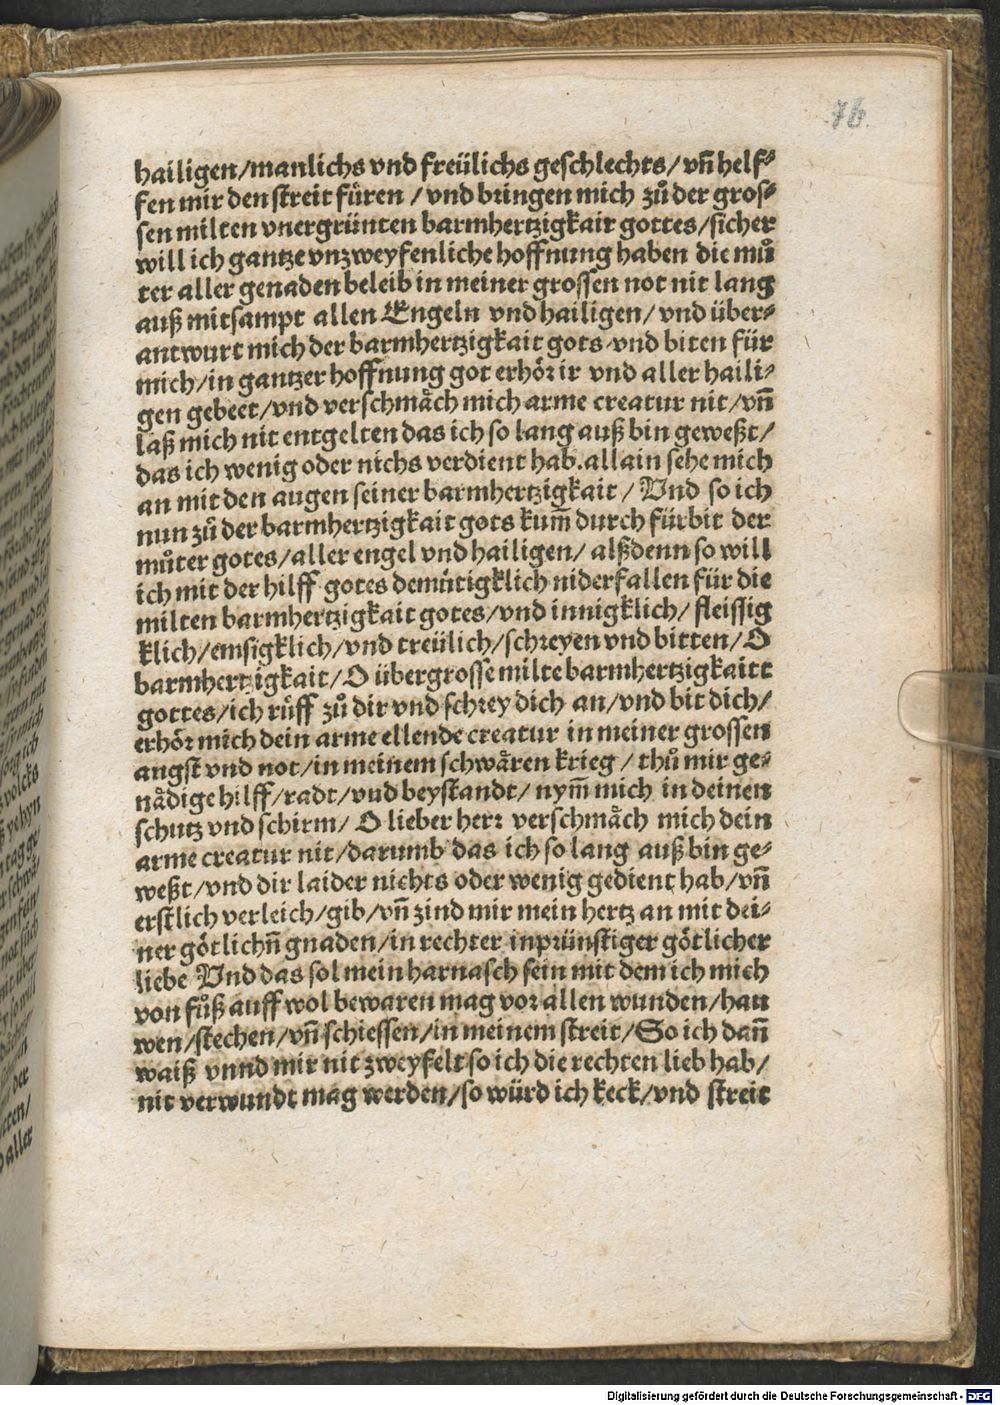 76.
hailigen/manlichs vnd freülichs geschlechts/ vn̄ helf⸗
fen mir den streit fu̇ren / vnd bringen mich zů der gros⸗
sen milten vnergrünten barmhertzigkair gottes/sicher
will ich gantze vnzweyfenliche hoffnung haben die mů
ter aller genaden beleib in meiner grossen not nit lang
auß mitsampt allen Engeln vnd hailigen/ vnd über⸗
antwurt mich der barmhertzigkait gots vnd biten für
mich/in gantzer hoffnung got erhör ir vnd aller haili⸗
gen gebeet/vnd verschmåch mich arme creatur nit/vn̄
laß mich nit entgelten das ich so lang auß bin geweßt/
das ich wenig oder nichs verdient hab.allain sehe mich
an mit den augen seiner barmhertzigkait / Vnd so ich
nun zů der barmhertzigkait gots kum̄ durch fürbit der
můter gotes/aller engel vnd hailigen/ alßdenn so will
ich mit der hilff gotes demůtigklich niderfallen für die
milten barmhertzigkait gotes/vnd innigklich/ fleissig
klich/emsigklich/vnd treülich/schreyen vnd bitten/O
barmhertzigkait/O übergrosse milte barmhertzigkaitt
gottes/ich růff zů dir vnd schrey dich an/vnd bit dich/
erhör mich dein arme ellende creatur in meiner grossen
angst vnd not/in meinem schwåren krieg / thů mir ge⸗
nådige hilff/radt/vnd beystandt/ nym̄ mich in deinen
schutz vnd schirm/ O lieber herr verschmåch mich dein
arme creatur nit/darumb das ich so lang auß bin ge⸗
weßt/vnd dir laider nichts oder wenig gedient hab/vn̄
erstlich verleich/gib/vn̄ zind mir mein hertz an mit dei⸗
ner götlichn̄ gnaden/in rechter inprünstiger götlicher
liebe Vnd das sol mein harnasch sein mit dem ich mich
von fůß auff wol bewaren mag vor allen wunden/hau
wen/stechen/vn̄ schiessen/in meinem streit/So ich dan̄
waiß vnnd mir nit zweyfelt so ich die rechten lieb hab/
nit verwundt mag werden/so würd ich keck/vnd streit
Digitalisierung gefördert durch die Deutsche Forschungsgemeinschaft - DFG